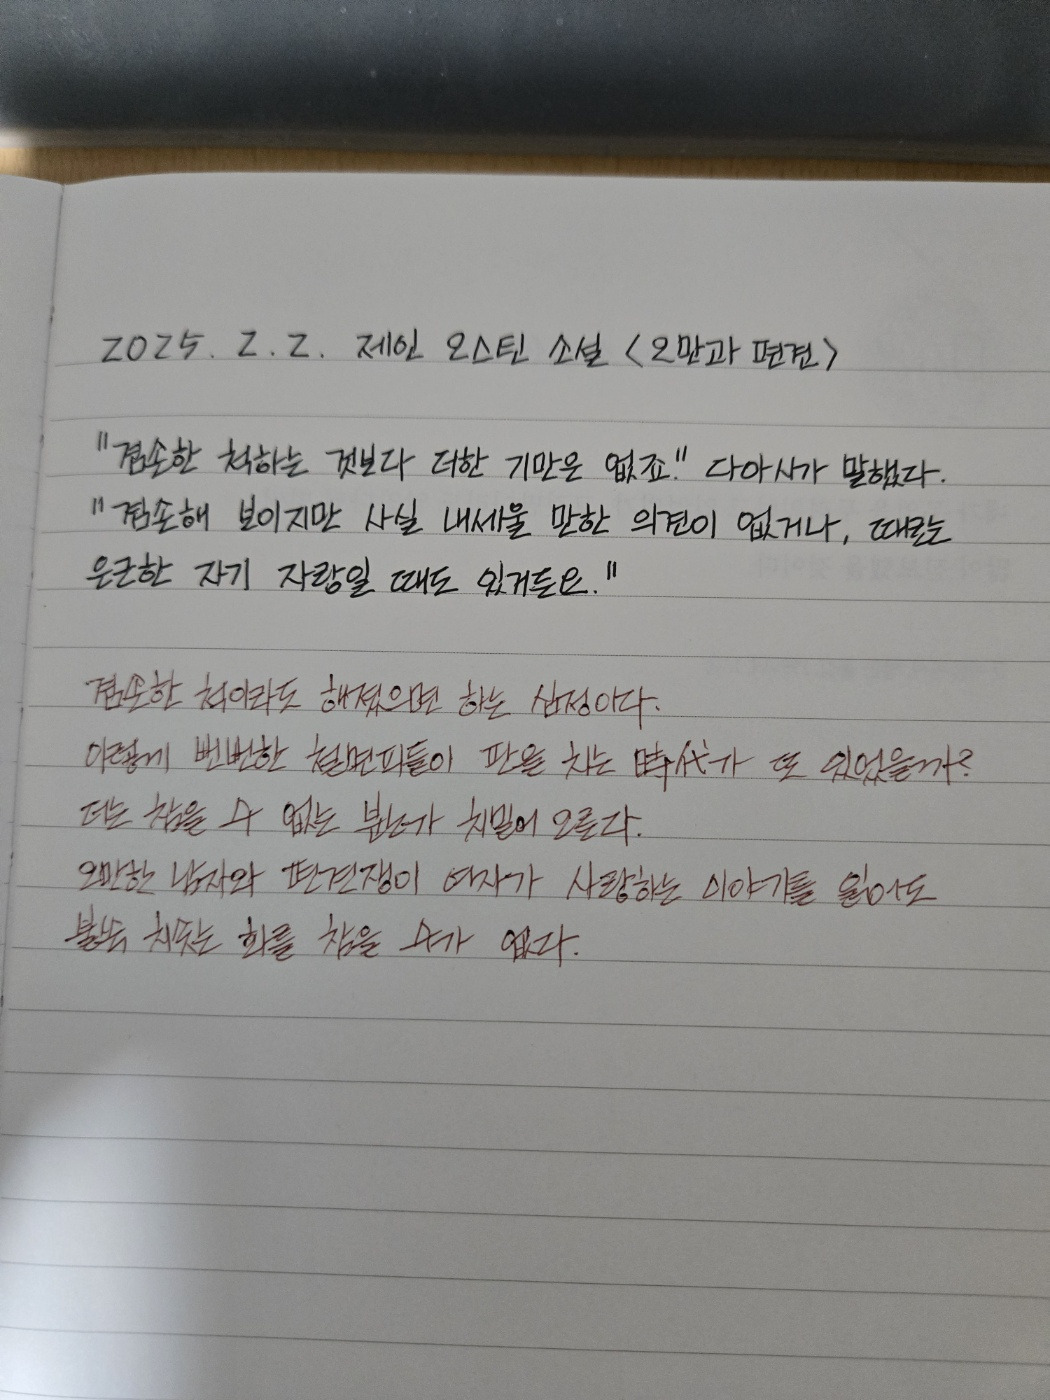 2025. 2. 2. 제인 오스틴 소설 <오만과 편견>
"겸손한 척하는 것보다 더한 기만은 없죠." 다아시가 말했다.
"겸손해 보이지만 사실 내세울 만한 의견이 없거나, 때로는
은근한 자기 자랑일 때도 있거든요."
겸손한 척이라도 해줬으면 하는 심정이다.
이렇게 뻔뻔한 철면피들이 판을 치는 時代가 또 있었을까?
더는 참을 수 없는 분노가 치밀어 오른다.
오만한 남자와 편견쟁이 여자가 사랑하는 이야기를 읽어도
불쑥 치솟는 화를 참을 수가 없다.